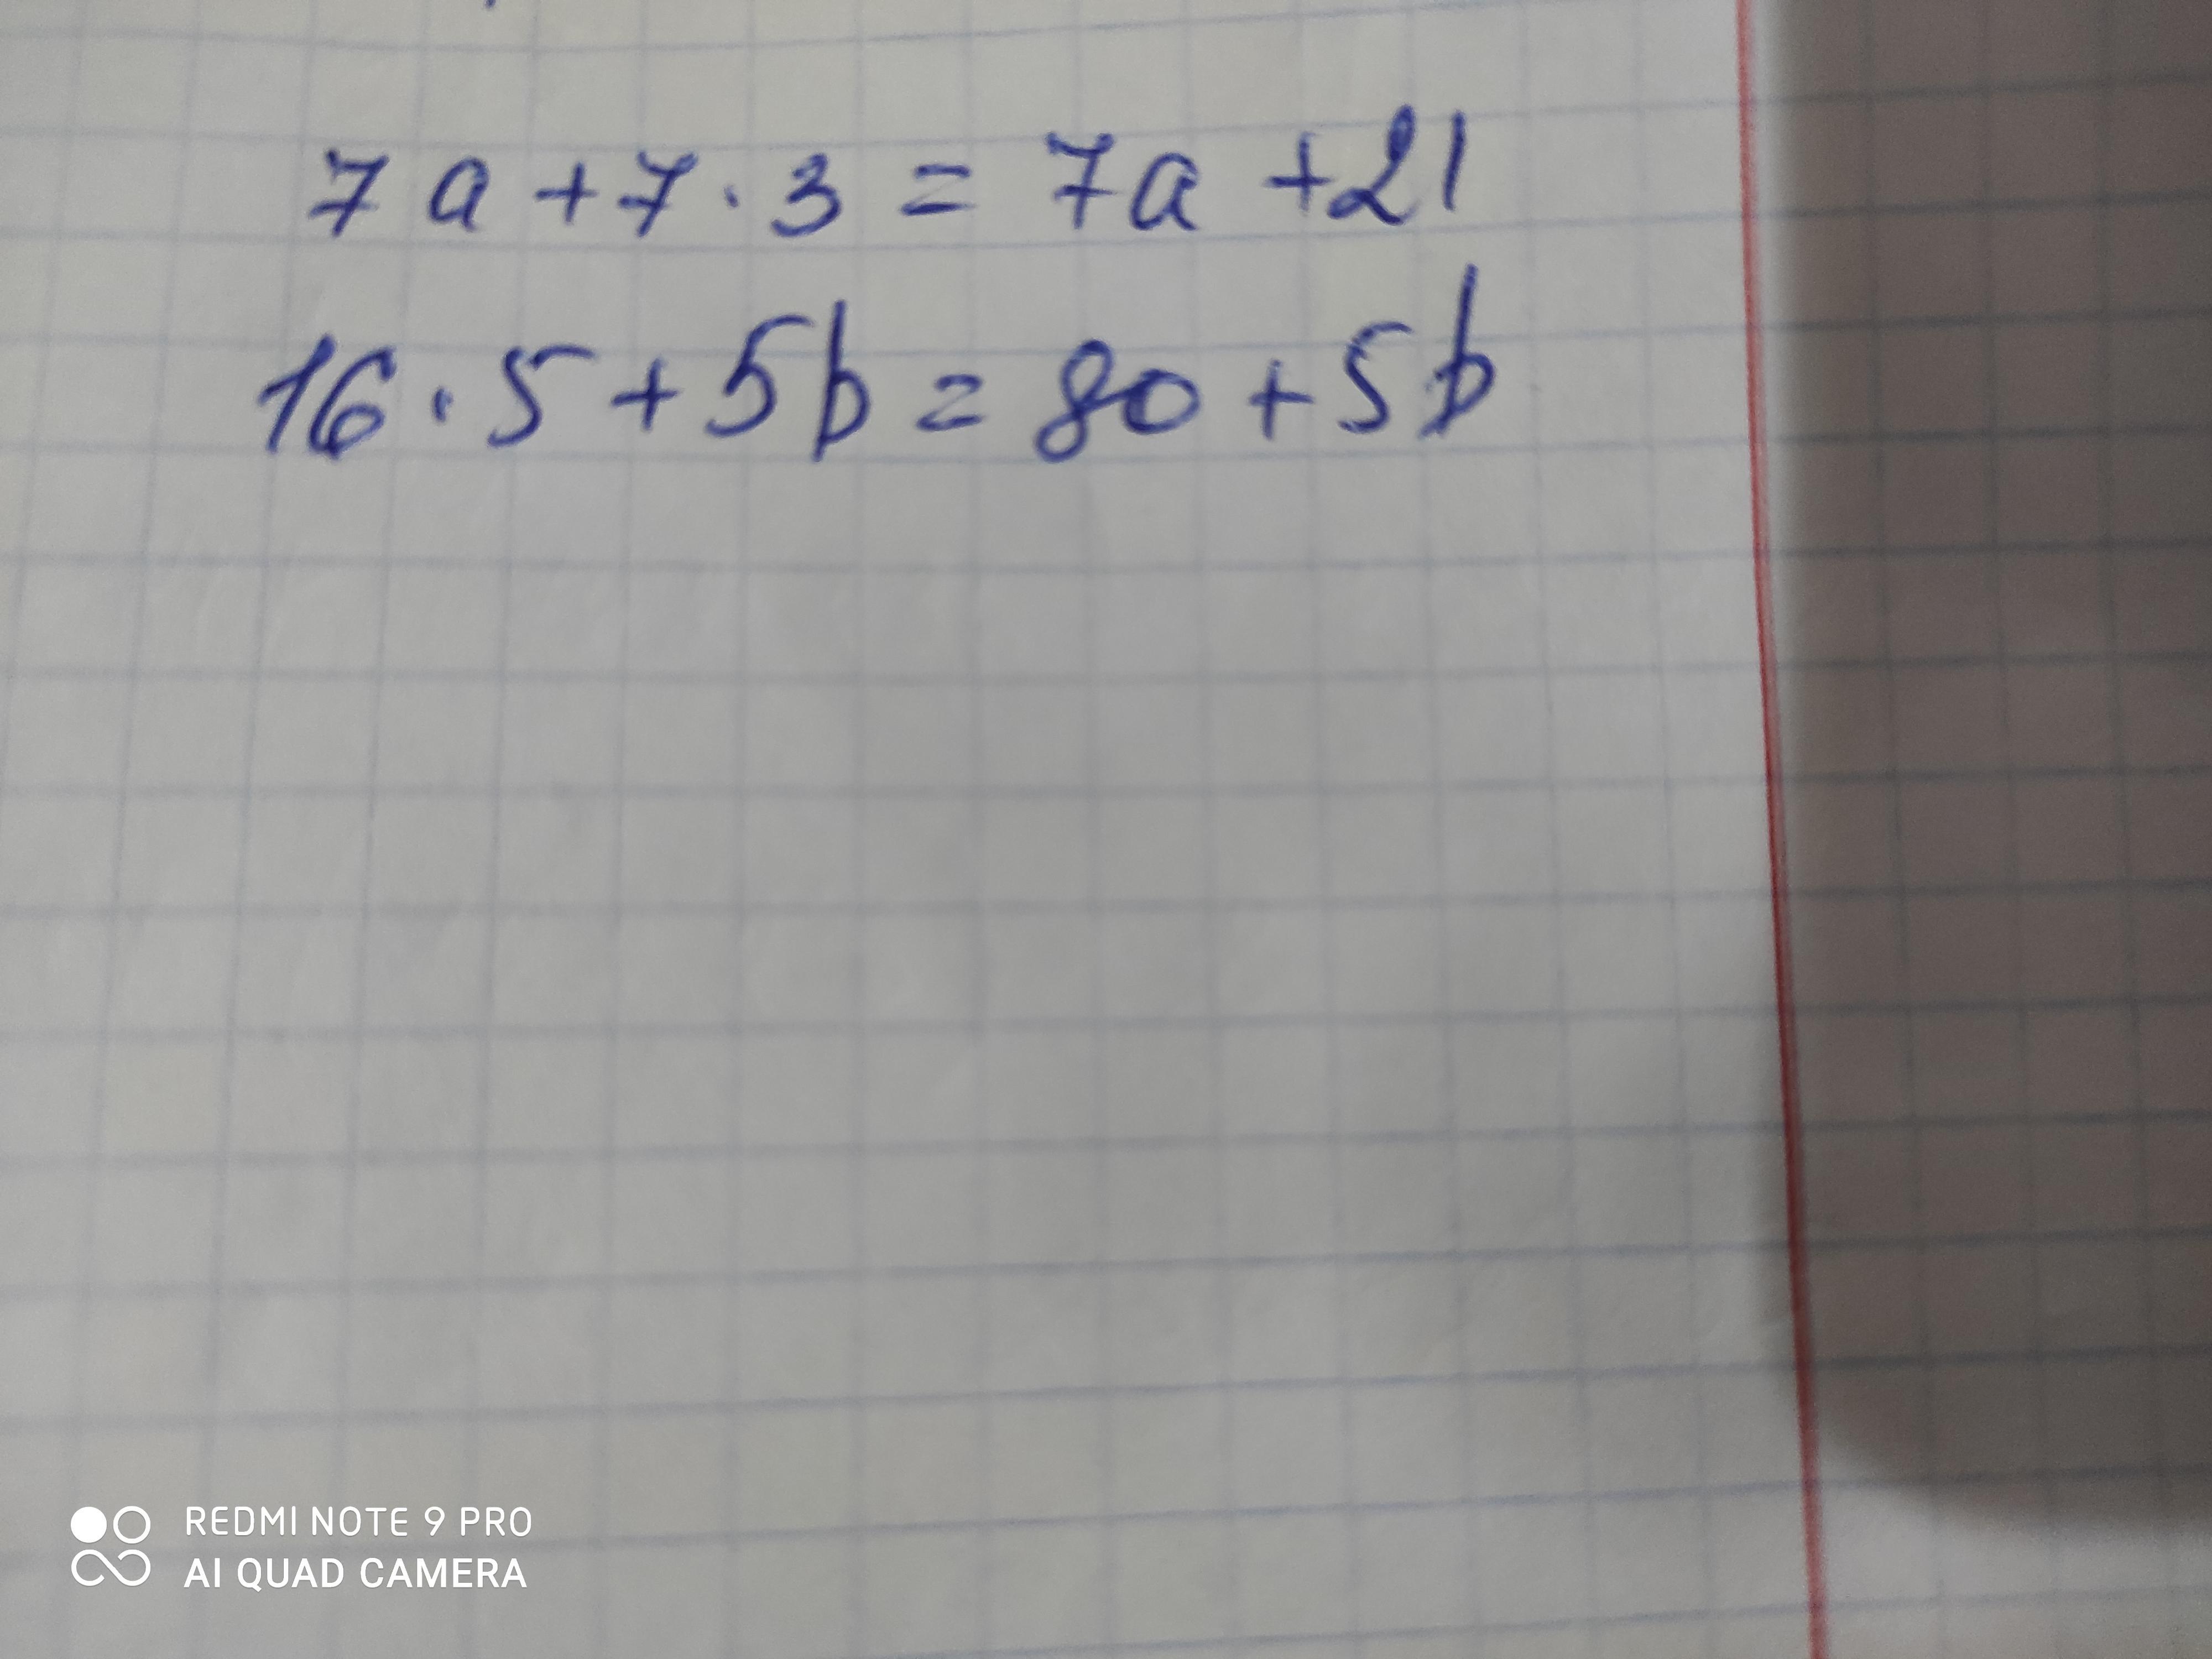 7a + 7 · 3 = 7a + 21
16 · 5 + 5b = 80 + 5b
REDMI NOTE 9 PRO
AI QUAD CAMERA